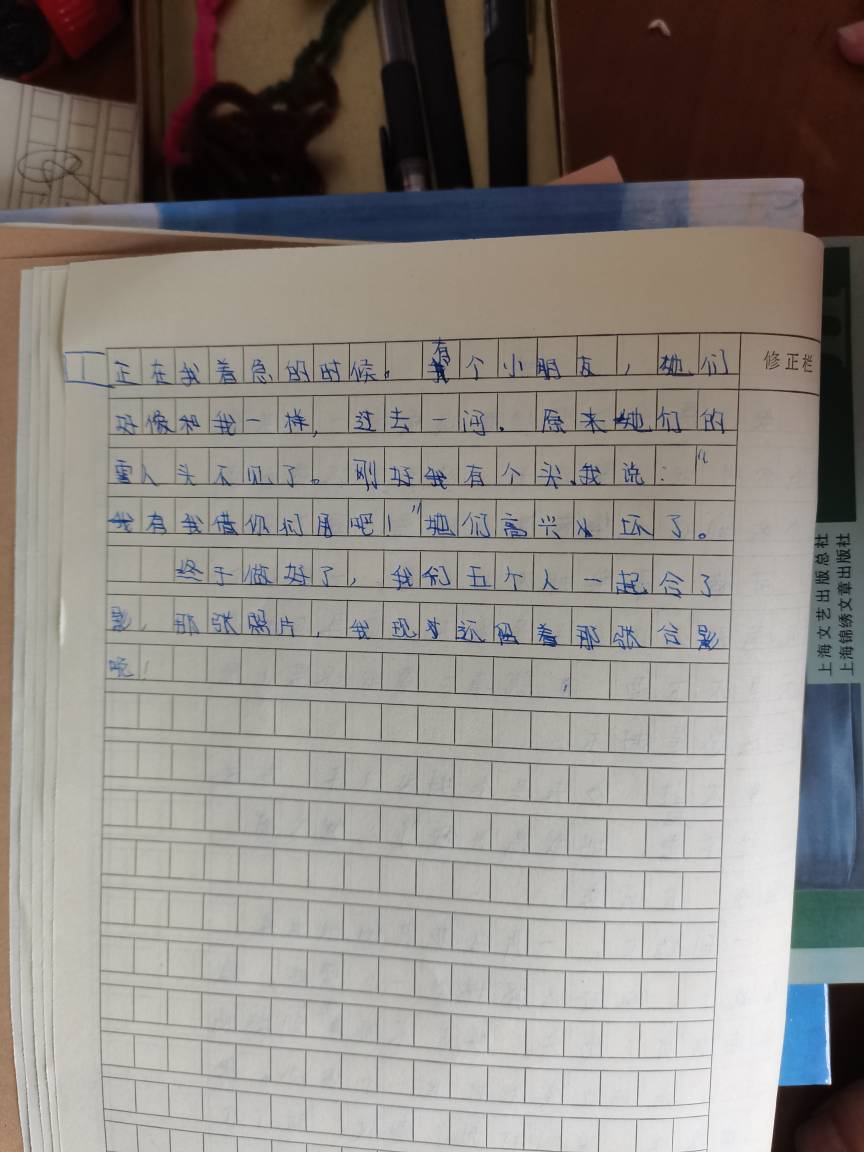 正在我着急的时候。有个小朋友，她们
修正栏
好像和我一样，过去一问．原来她们的
雪人头不见了。刚好我有个头．我说：“
我有我借你们用吧！”她们高兴坏了。
终于做好了，我们五个人一起合了
影，那张照片，我现才还留着那张合影
呢！
上海文艺出版总社
上海锦绣文章出版社